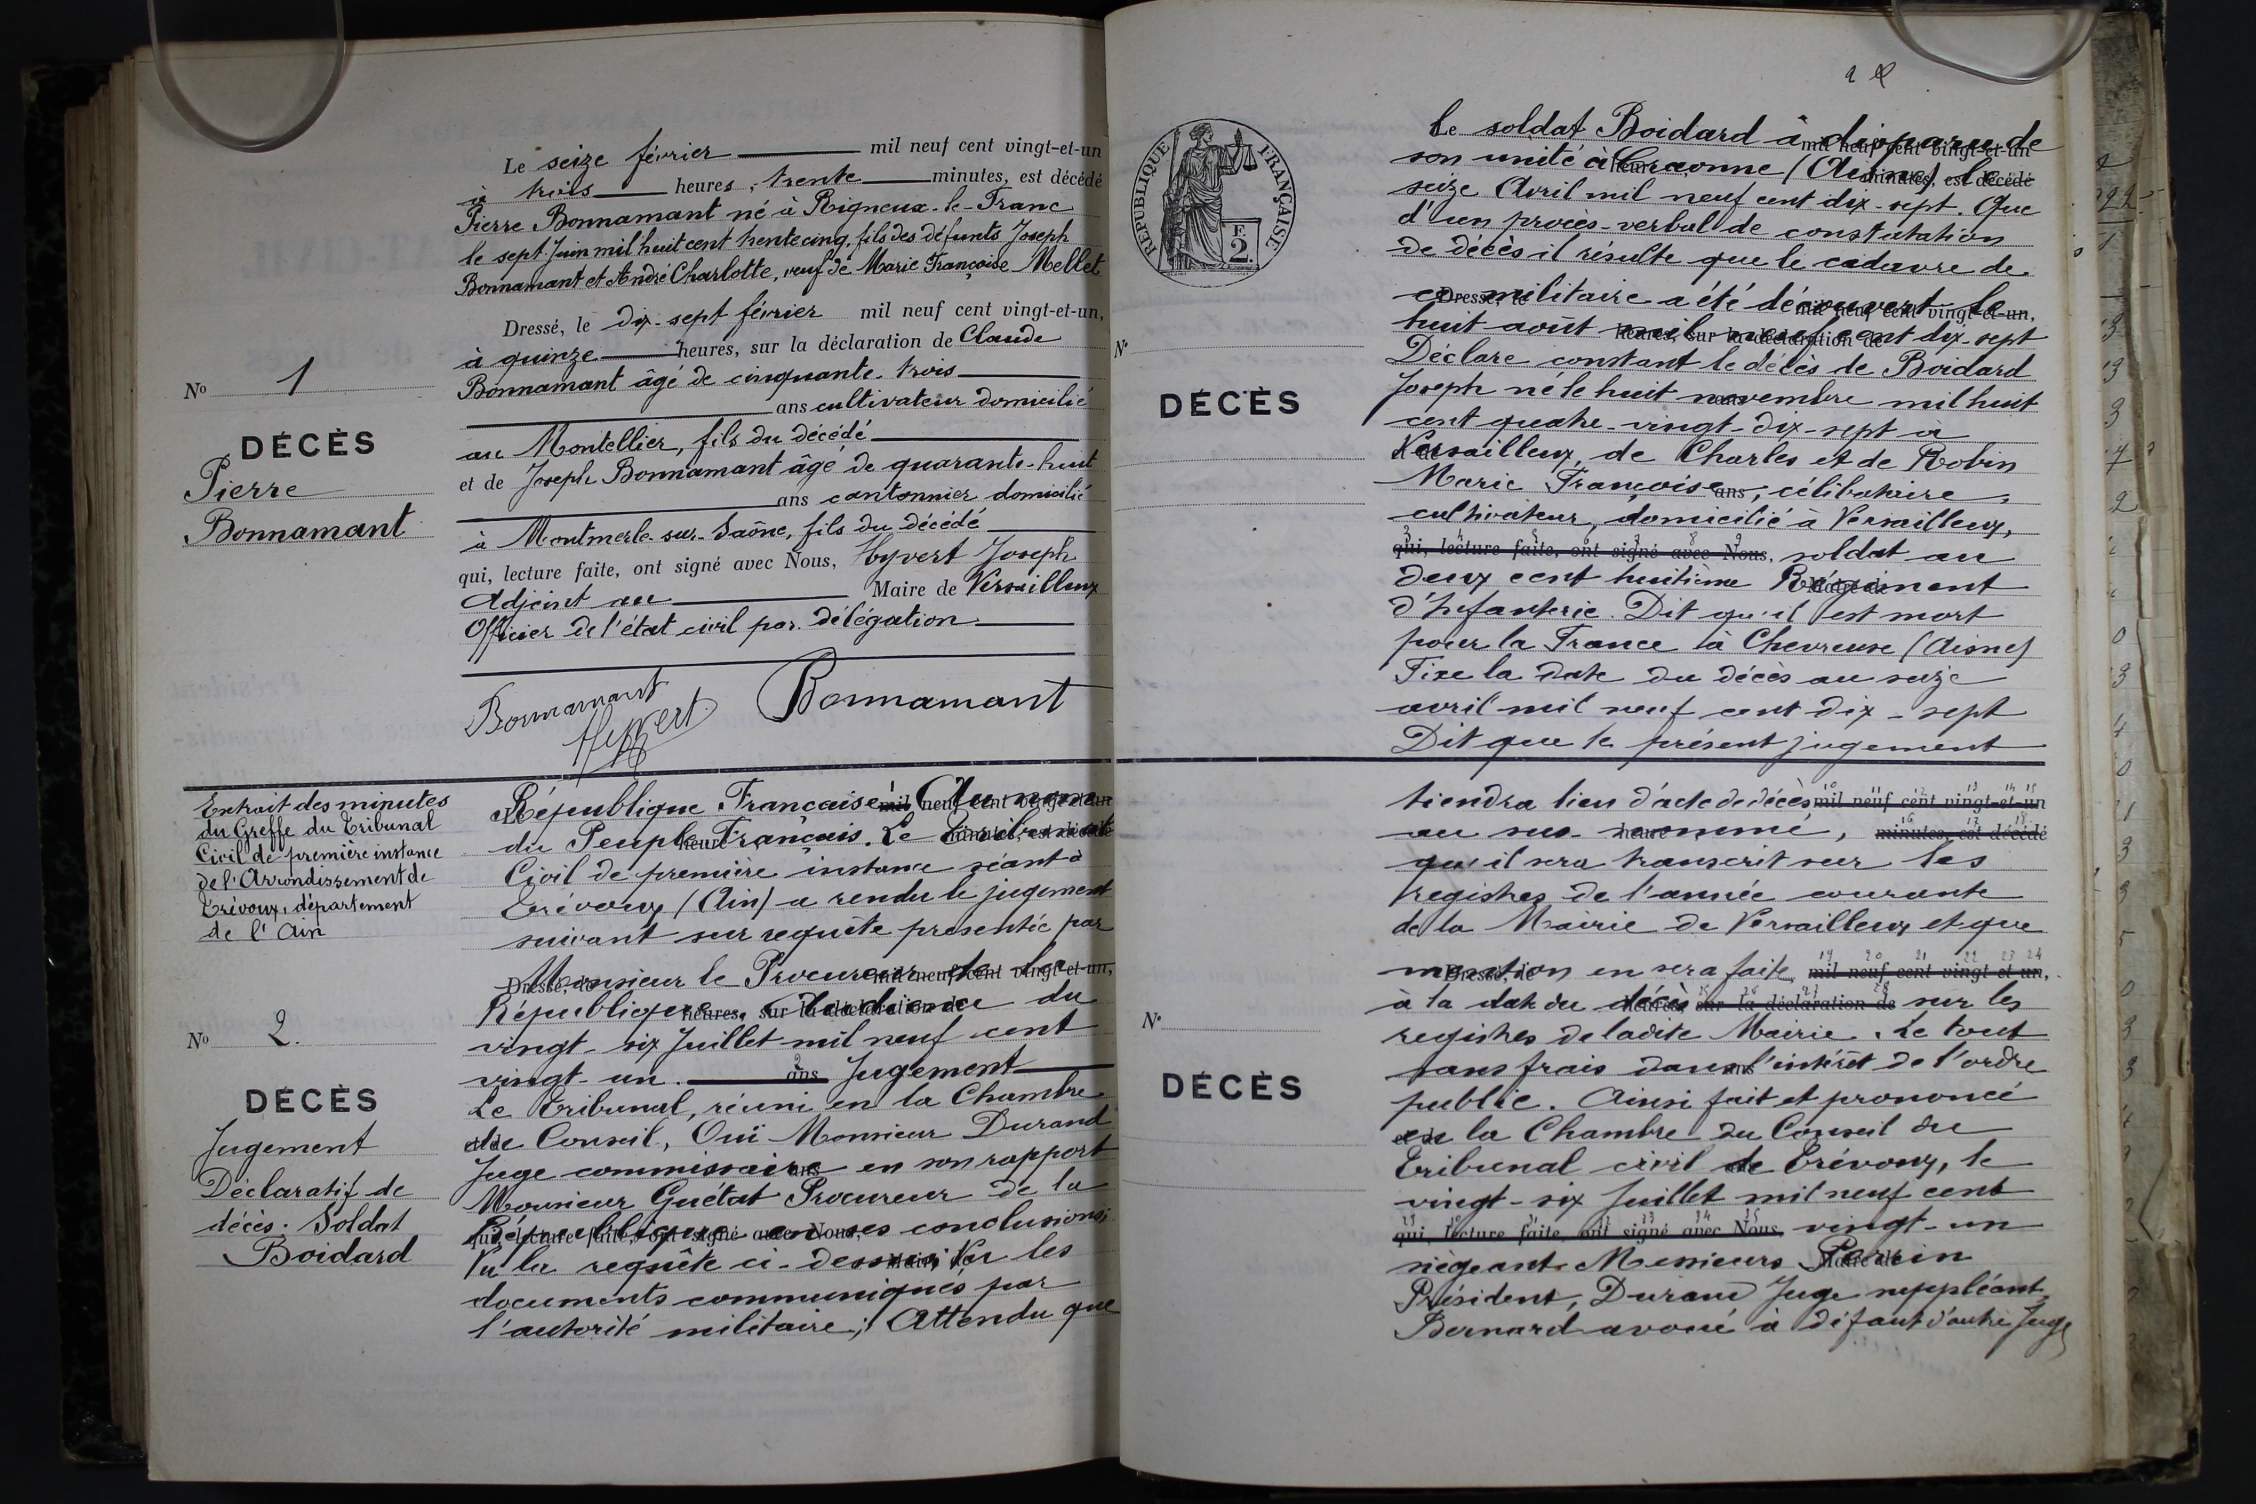 Le seize février mil neuf cent vingt-et-un
à trois heures, trente minutes, est décédé
Pierre Bonnamant né à Rigneux-le-Franc
le sept Juin mil huit cent trente cinq, fils des défunts Joseph
Bonnamant et André Charlotte, veuf de Marie Françoise Mellet
Dressé, le dix-sept février mil neuf cent vingt-et-un,
à quinze heures, sur la déclaration de Claude
Bonnamant âgé de cinquante-trois
ans cultivateur domicilié
au Montellier, fils du décédé
et de Joseph Bonnamant âgé de quarante-huit
ans cantonnier domicilié
à Montmerle-sur-Saône, fils du décédé
qui, lecture faite, ont signé avec Nous, Hyvert Joseph
Adjoint au Maire de Versailleux
Officier de l'état civil par délégation
Bonnamant
Hyvert
Bonnamant
No 1
DÉCÈS
Pierre
Bonnamant
Extrait des minutes
du Greffe du Tribunal
Civil de première instance
de l'Arrondissement de
Trévoux, département
de l'Ain
No 2.
DÉCÈS
Jugement
Déclaratif de
décès. Soldat
Boidard
République Française. Au nom mil neuf cent vingt-et-un
du Peuple Français. Le Tribunal heures minutes, est décédé
Civil de première instance séant à
Trévoux (Ain) a rendu le jugement
suivant sur requête presentée par
Monsieur le Procureur de la Dressé, le mil neuf cent vingt-et-un,
République. heures, sur la déclaration de du
vingt-six Juillet mil neuf cent
vingt-un. ans Jugement
Le Tribunal, réuni en la Chambre
et de du Conseil, Ouï Monsieur Durand
Juge commissaire ans en son rapport
Monsieur Guétat Procureur de la
République en ses conclusions; qui, lecture faite, ont signé avec Nous,
Vu la requête ci-dessus; Vu les Maire de
documents communiqués par
l'autorité militaire; Attendu que
2
RÉPUBLIQUE FRANÇAISE
E
2.
Le soldat Boidard à disparu de mil neuf cent vingt-et-un
son unité à Craonne (Aisne) le heures minutes, est décédé
seize Avril mil neuf cent dix-sept. Que
d'un procès-verbal de constatation
de décès il résulte que le cadavre de
ce militaire a été découvert le Dressé, le mil neuf cent vingt-et-un,
huit août mil neuf cent dix-sept heures, sur la déclaration de
Déclare constant le décès de Boidard
Joseph né le huit novembre mil huit ans
cent quatre-vingt-dix-sept à
Versailleux, de Charles et de Robin
Marie Françoise, ans célibataire,
cultivateur, domicilié à Versailleux,
qui, lecture faite, ont signé avec Nous, soldat au
deux cent huitième Régiment Maire de
d'Infanterie. Dit qu'il est mort
pour la France à Chevreuse (Aisne)
Fixe la date du décès au seize
avril mil neuf cent dix-sept
Dit que le présent jugement
No
DÉCÈS
tiendra lieu d'acte de décès mil neuf cent vingt-et-un
au sus-nommé, heures minutes, est décédé
qu'il sera transcrit sur les
registres de l'année courante
de la Mairie de Versailleux et que
mention en sera faite Dressé, le mil neuf cent vingt-et-un,
à la date du décès heures, sur la déclaration de sur les
registres de ladite Mairie. Le tout
sans frais dans l'intérêt de l'ordre ans
public. Ainsi fait et prononcé
et de en la Chambre du Conseil du
Tribunal civil de Trévoux, le
vingt-six Juillet mil neuf cent
qui, lecture faite, ont signé avec Nous, vingt-un
siégeant Messieurs Perrin Maire de
Président, Durand Juge suppléant
Bernard avoué à défaut d'autre Juge
No
DÉCÈS